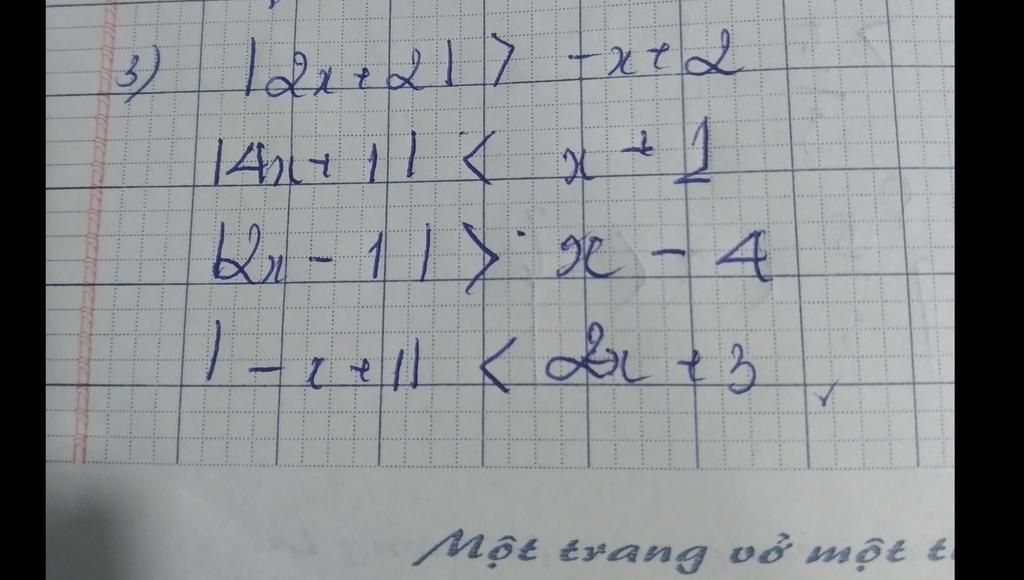 3) |2x + 2| > -x + 2
|4x + 1| < x + 1
|2x - 1| > x - 4
|-x + 1| < 2x + 3
Một trang vở một t